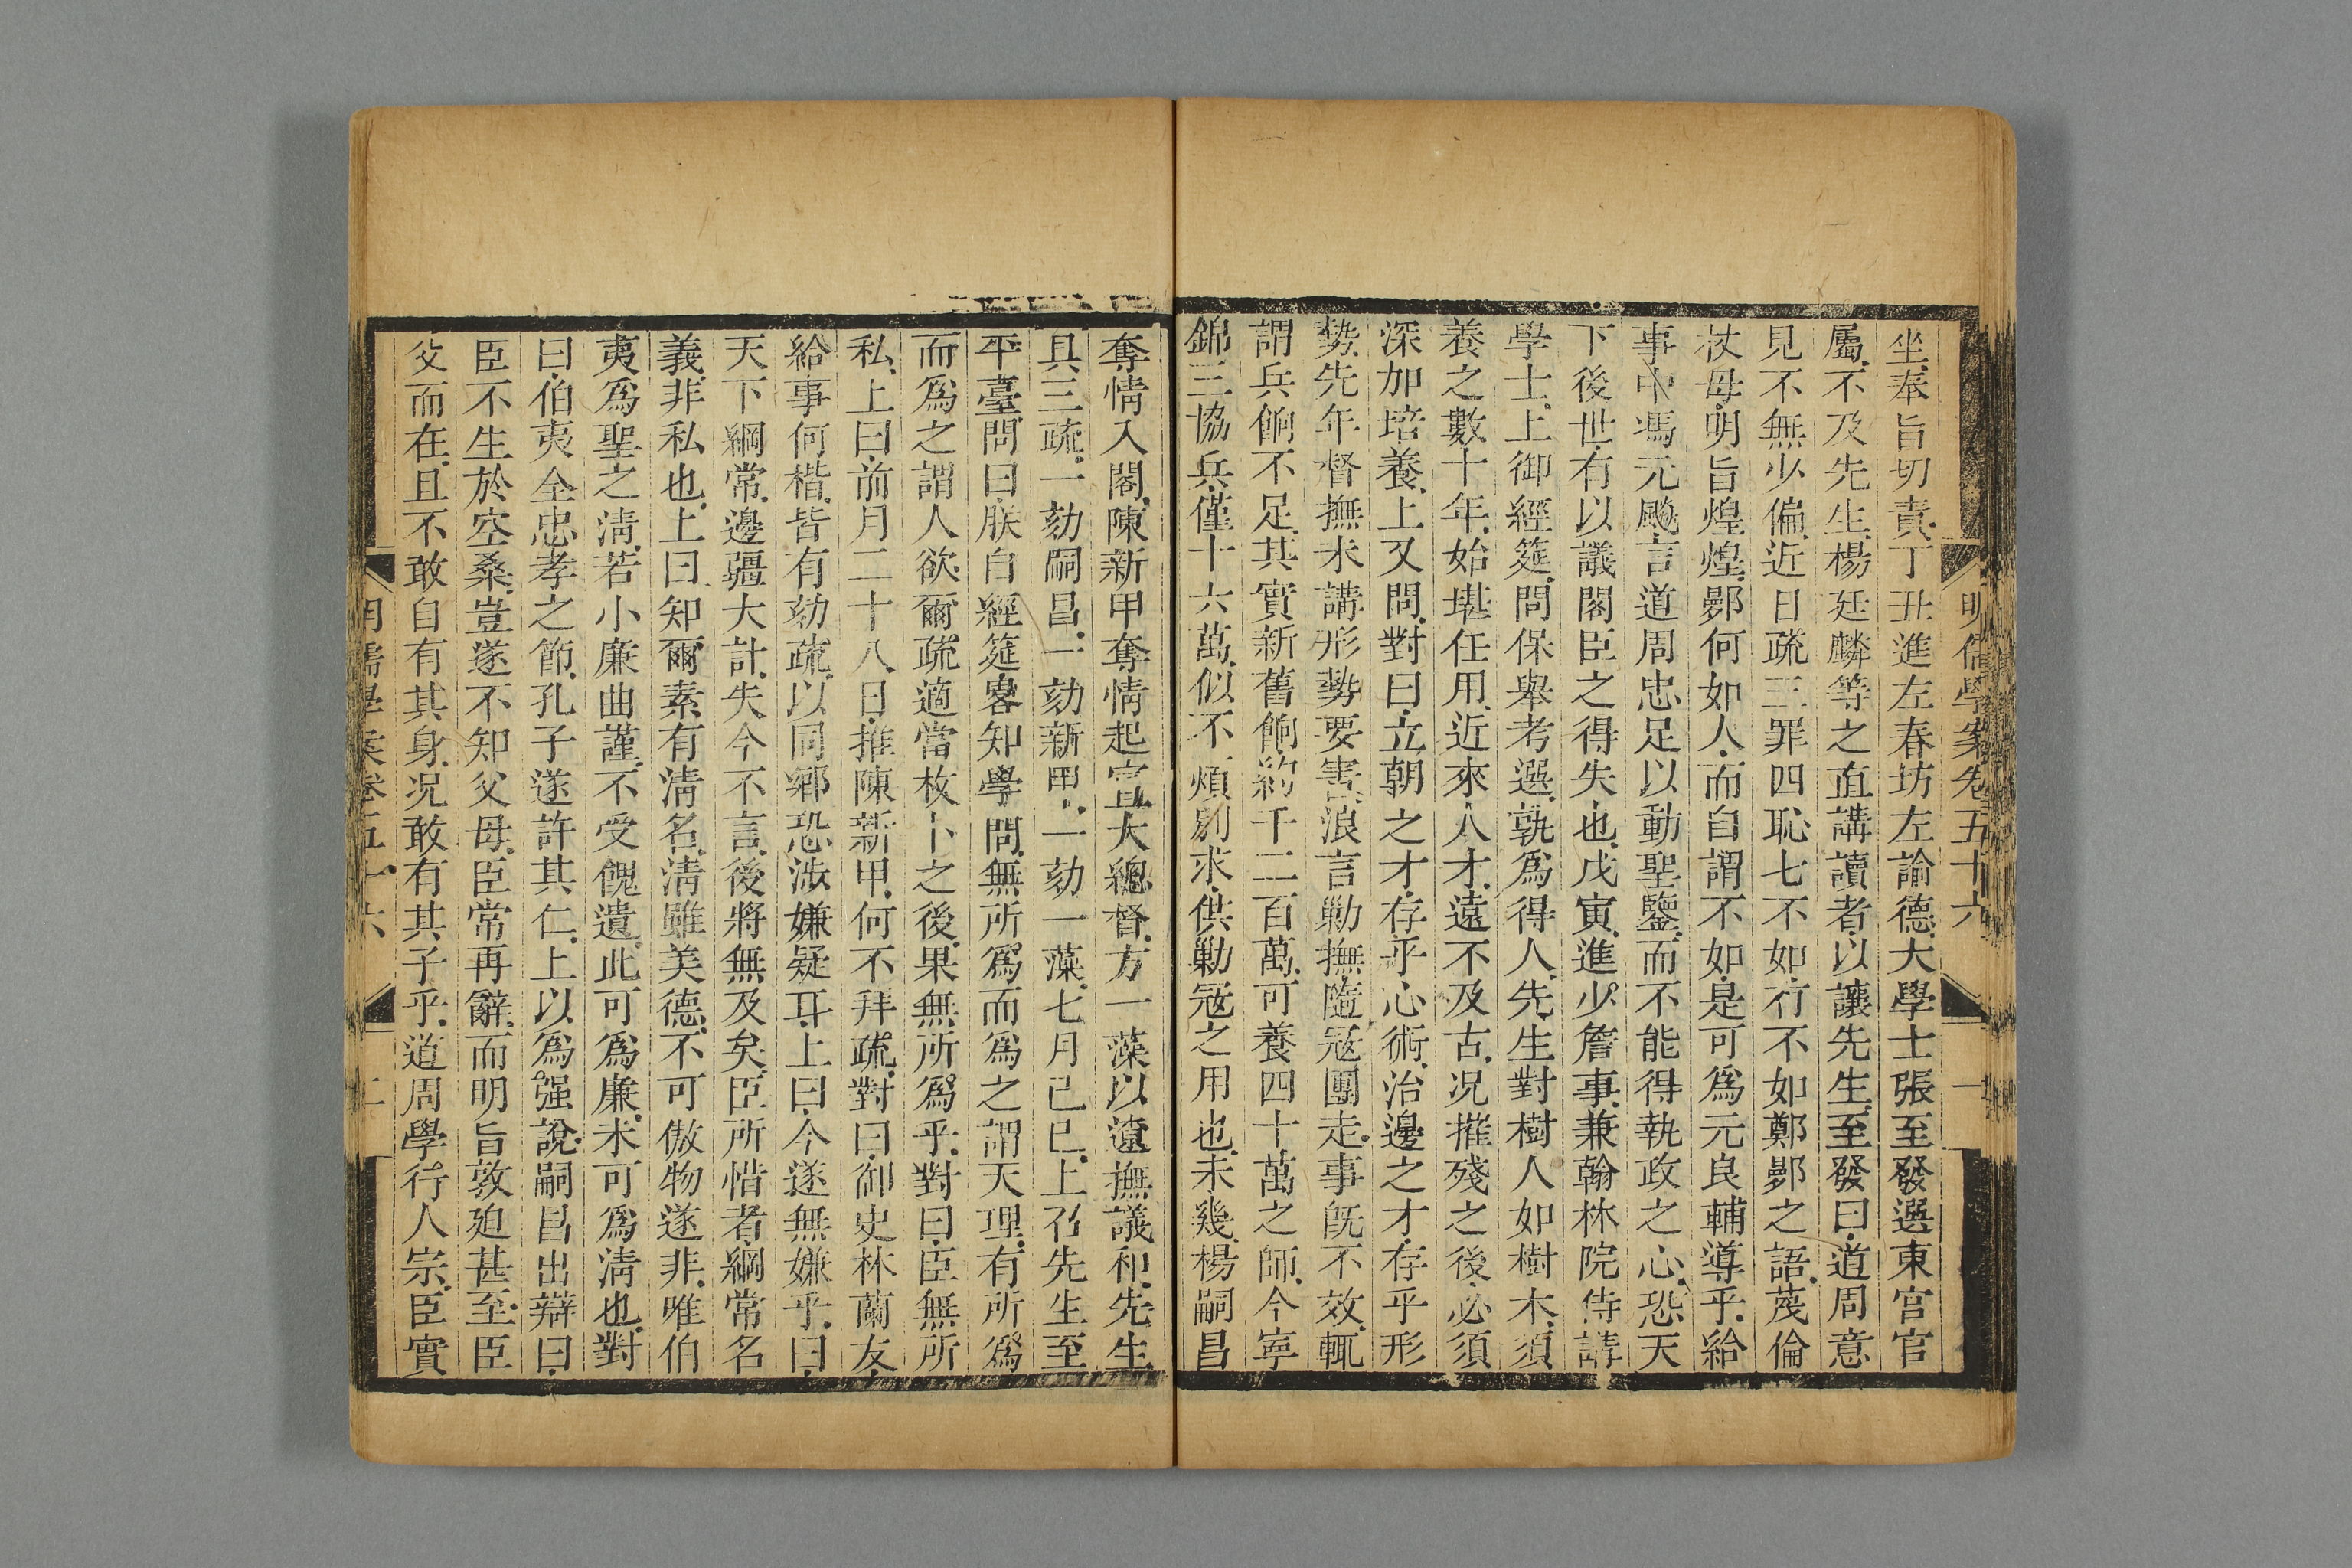 明儒學案卷五十六 一
坐奉旨切責丁丑進左春坊左諭德大學士張至發選東宮官
屬不及先生楊廷麟等之直講讀者以讓先生至發曰道周意
見不無少偏近日疏三罪四恥七不如有不如鄭鄤之語蔑倫
杖母明旨煌煌鄤何如人而自謂不如是可爲元良輔導乎給
事中馮元颷言道周忠足以動聖鑒而不能得執政之心恐天
下後世有以議閣臣之得失也戊寅進少詹事兼翰林院侍講
學士上御經筵問保舉考選孰爲得人先生對樹人如樹木須
養之數十年始堪任用近來人才遠不及古况摧殘之後必須
深加培養上又問對曰立朝之才存乎心術治邊之才存乎形
勢先年督撫未講形勢要害浪言勦撫隨寇團走事旣不效輒
謂兵餉不足其實新舊餉約千二百萬可養四十萬之師今寧
錦三協兵僅十六萬似不煩別求供勦寇之用也未幾楊嗣昌
奪情入閣陳新甲奪情起宣大總督方一藻以遼撫議和先生
具三疏一劾嗣昌一劾新甲一劾一藻七月己巳上召先生至
平臺問曰朕自經筵畧知學問無所爲而爲之謂天理有所爲
而爲之謂人欲爾疏適當枚卜之後果無所爲乎對曰臣無所
私上曰前月二十八日推陳新甲何不拜疏對曰御史林蘭友
給事何楷皆有劾疏以同鄉恐涉嫌疑耳上曰今遂無嫌乎曰
天下綱常邊疆大計失今不言後將無及矣臣所惜者綱常名
義非私也上曰知爾素有清名清雖美德不可傲物遂非唯伯
夷爲聖之清若小廉曲謹不受餽遺此可爲廉未可爲清也對
曰伯夷全忠孝之節孔子遂許其仁上以爲强說嗣昌出辯曰
臣不生於空桑豈遂不知父母臣常再辭而明旨敦迫甚至臣
父而在且不敢自有其身况敢有其子乎道周學行人宗臣實
明儒學案卷五十六 二